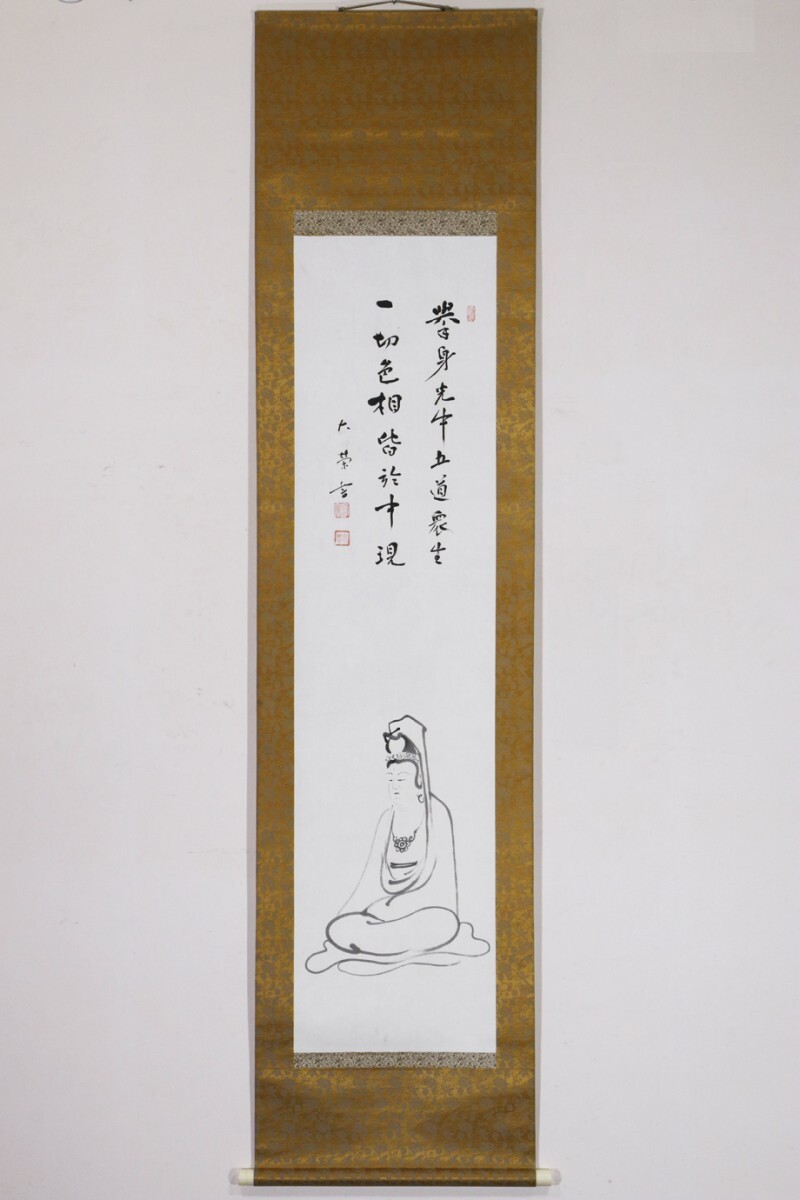 擧身光中五道衆生
一切色相皆於中現
大榮書